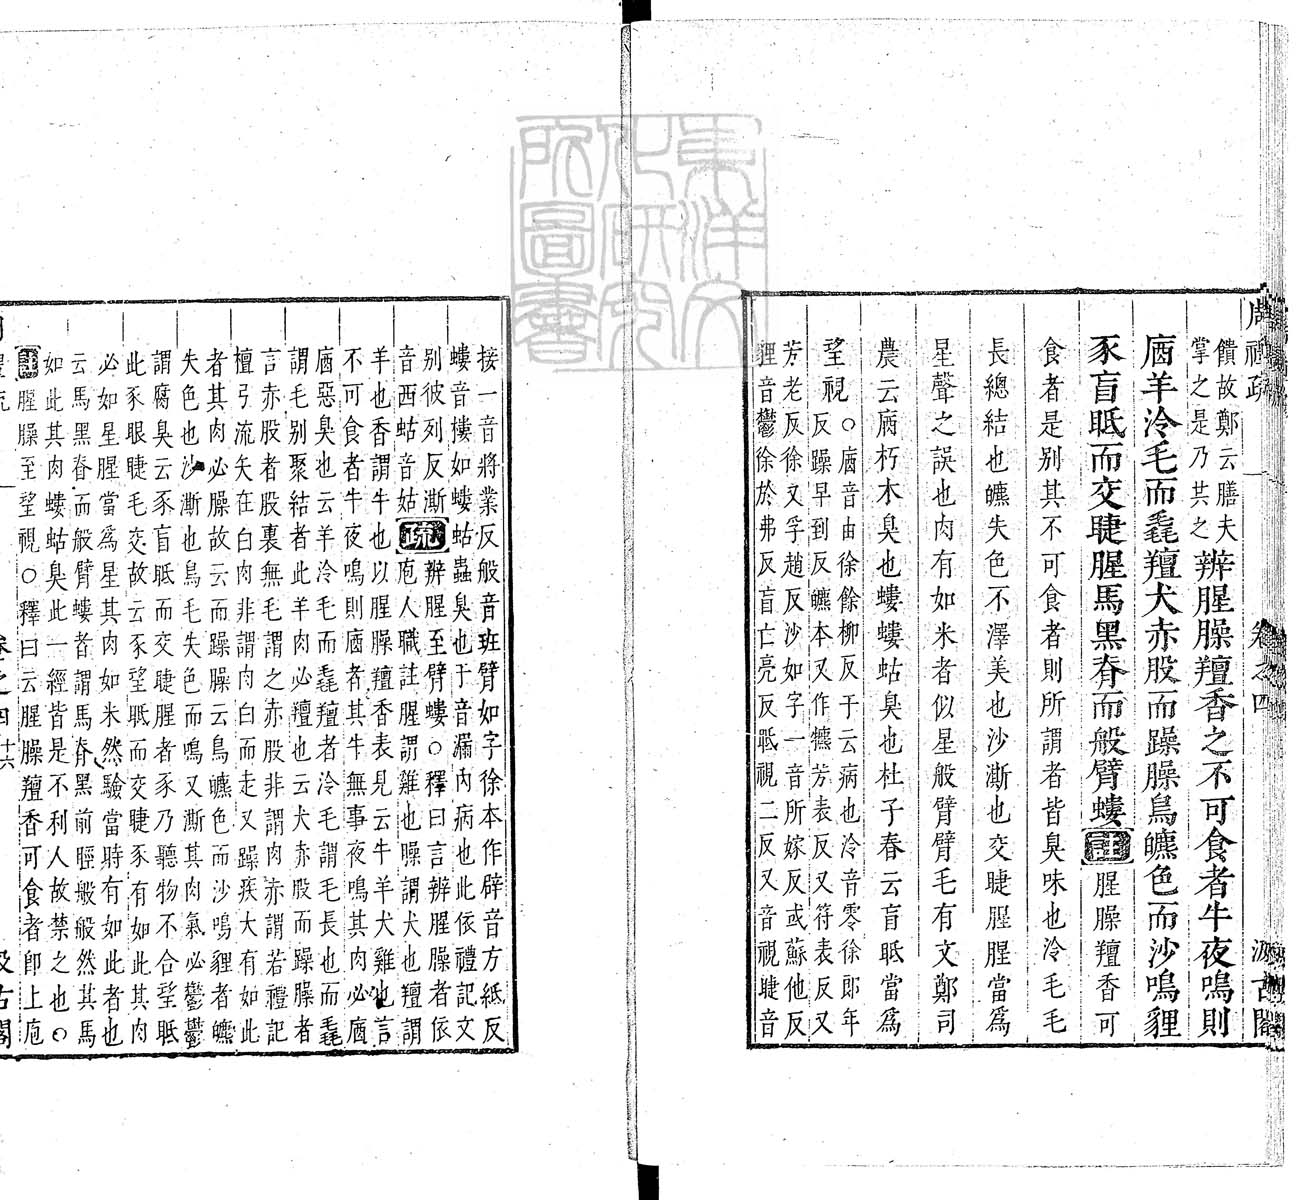 周禮疏 卷之四 汲古閣
饋故鄭云膳夫
掌之是乃共之
辨腥臊羶香之不可食者牛夜鳴則
庮羊泠毛而毳羶犬赤股而躁臊鳥皫色而沙鳴貍
豕盲眡而交睫腥馬黑脊而般臂螻註腥臊羶香可
食者是別其不可食者則所謂者皆臭味也泠毛毛
長總結也皫失色不澤美也沙澌也交睫腥腥當爲
星聲之誤也肉有如米者似星般臂臂毛有文鄭司
農云庮朽木臭也螻螻蛄臭也杜子春云盲眡當爲
望視○庮音由徐餘柳反干云病也泠音零徐郎年
反躁早到反皫本又作㹾芳表反又符表反又
芳老反徐又孚趙反沙如字一音所嫁反或蘇他反
貍音鬱徐於弗反盲亡亮反眡視二反又音視睫音
接一音將業反般音班臂如字徐本作辟音方紙反
螻音樓如螻蛄蟲臭也于音漏內病也此依禮記文
別彼列反澌
音西蛄音姑疏庖人職註腥謂雞也臊謂犬也羶謂
辨腥至臂螻○釋曰言辨腥臊者依
羊也香謂牛也以腥臊羶香表見云牛羊犬雞也言
不可食者牛夜鳴則庮者其牛無事夜鳴其肉必庮
庮惡臭也云羊泠毛而毳羶者泠毛謂毛長也而毳
謂毛別聚結者此羊肉必羶也云犬赤股而躁臊者
言赤股者股裏無毛謂之赤股非謂肉赤謂若禮記
檀弓流矢在白肉非謂肉白而走又躁疾犬有如此
者其肉必臊故云而躁臊云鳥皫色而沙鳴貍者皫
失色也沙澌也鳥毛失色而鳴又澌其肉氣必鬱鬱
謂腐臭云豕盲眡而交睫腥者豕乃聽物不合望眡
此豕眼睫毛交故云豕望眡而交睫豕有如此其肉
必如星腥當爲星其肉如米然驗當時有如此者也
云馬黑脊而般臂螻者謂馬脊黑前脛般般然其馬
如此其肉螻蛄臭此一經皆是不利人故禁之也○
註腥臊至望視○釋曰云腥臊羶香可食者卽上庖
卷之四 十六 汲古閣